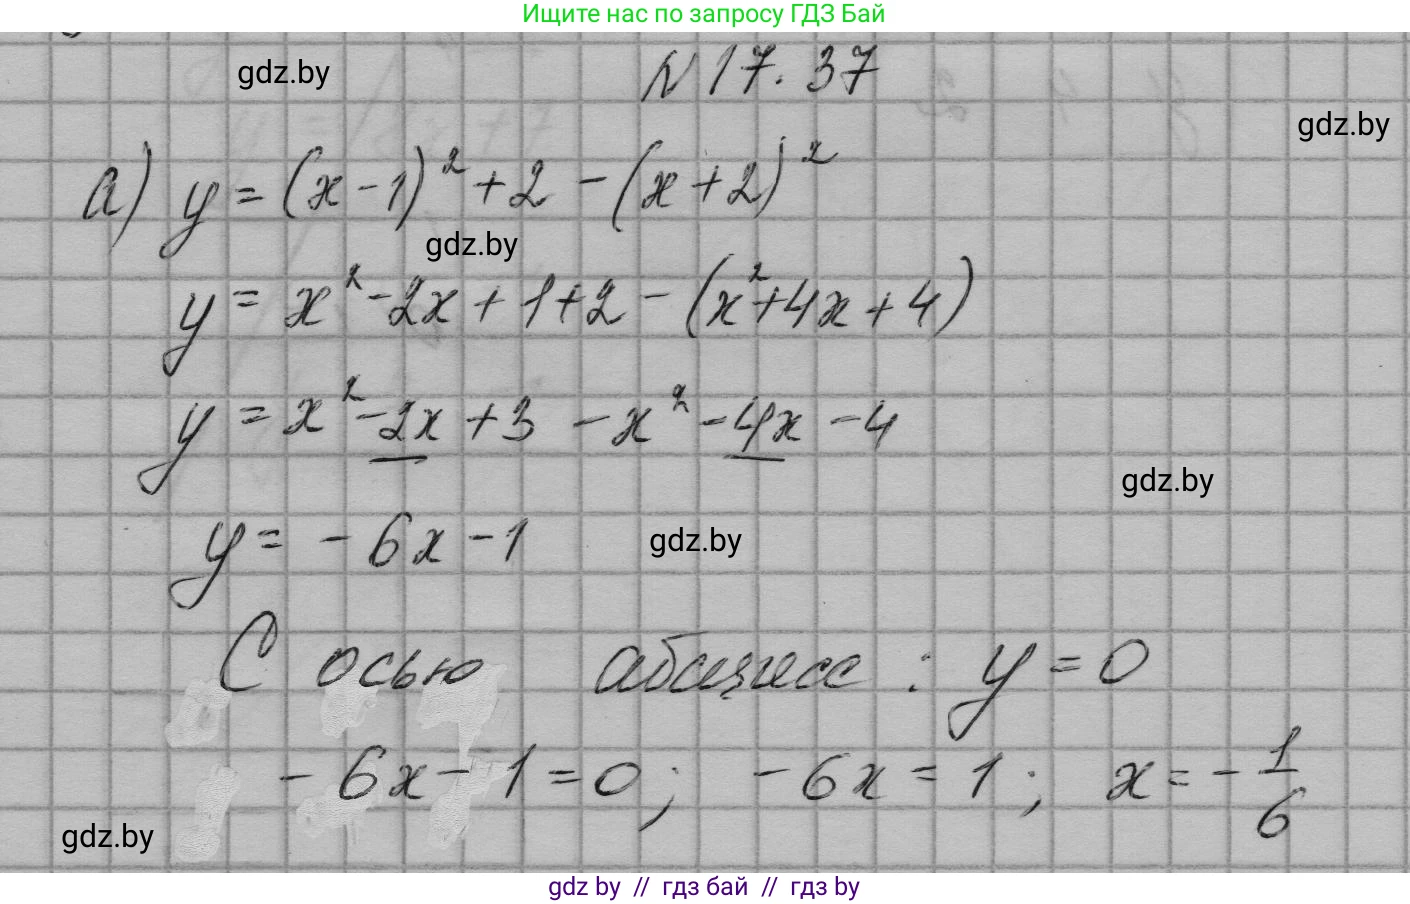 Ищите нас по запросу ГДЗ Бай
gdz.by
N 17.37
gdz.by
а) y = (x-1)² + 2 - (x+2)²
gdz.by
y = x² - 2x + 1 + 2 - (x² + 4x + 4)
y = x² - 2x + 3 - x² - 4x - 4
gdz.by
y = - 6x - 1
gdz.by
С осью абсцисс : y = 0
- 6x - 1 = 0; - 6x = 1; x = - 1/6
gdz.by
gdz by // гдз бай // гдз by